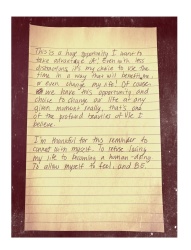 This is a huge opportunity I want to
take advantage of! Even with less
distractions, it's my choice to use the
time in a way that will benefit me
or even change my life! Of course
we have this opportunity and
choice to change our life at any
given moment really, that's one
of the profound beauties of life I
believe.
I'm thankful for this reminder to
connect with myself. To refuse living
my life to becoming a human-doing
To allow myself to feel, and BE.